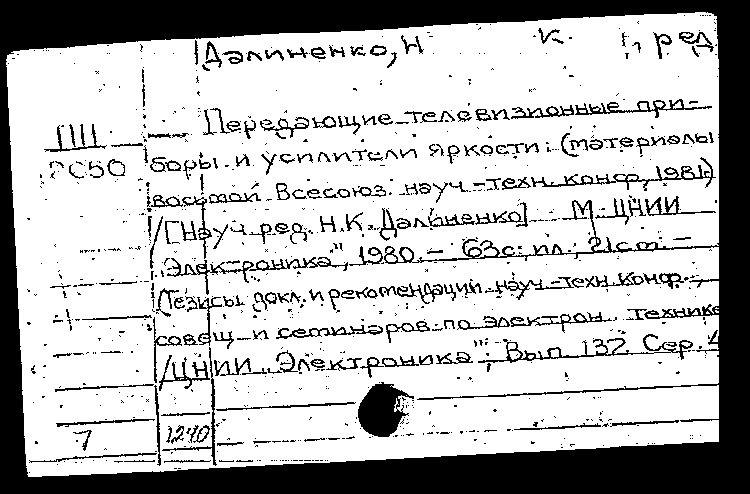 Далиненко, Н К. , ред
Передающие телевизионные при-
боры и усилители яркости: (материалы
восьмой Всесоюз. науч.-техн. конф, 1981)
/[Науч ред. Н.К. Далиненко] М. ЦНИИ
„Электроника", 1980. – 63с; ил.; 21см. –
(Тезисы докл. и рекомендации науч.-техн. конф.,
совещ и семинаров по электрон. технике
/ЦНИИ „Электроника"; Вып. 137. Сер. 4
7 1240